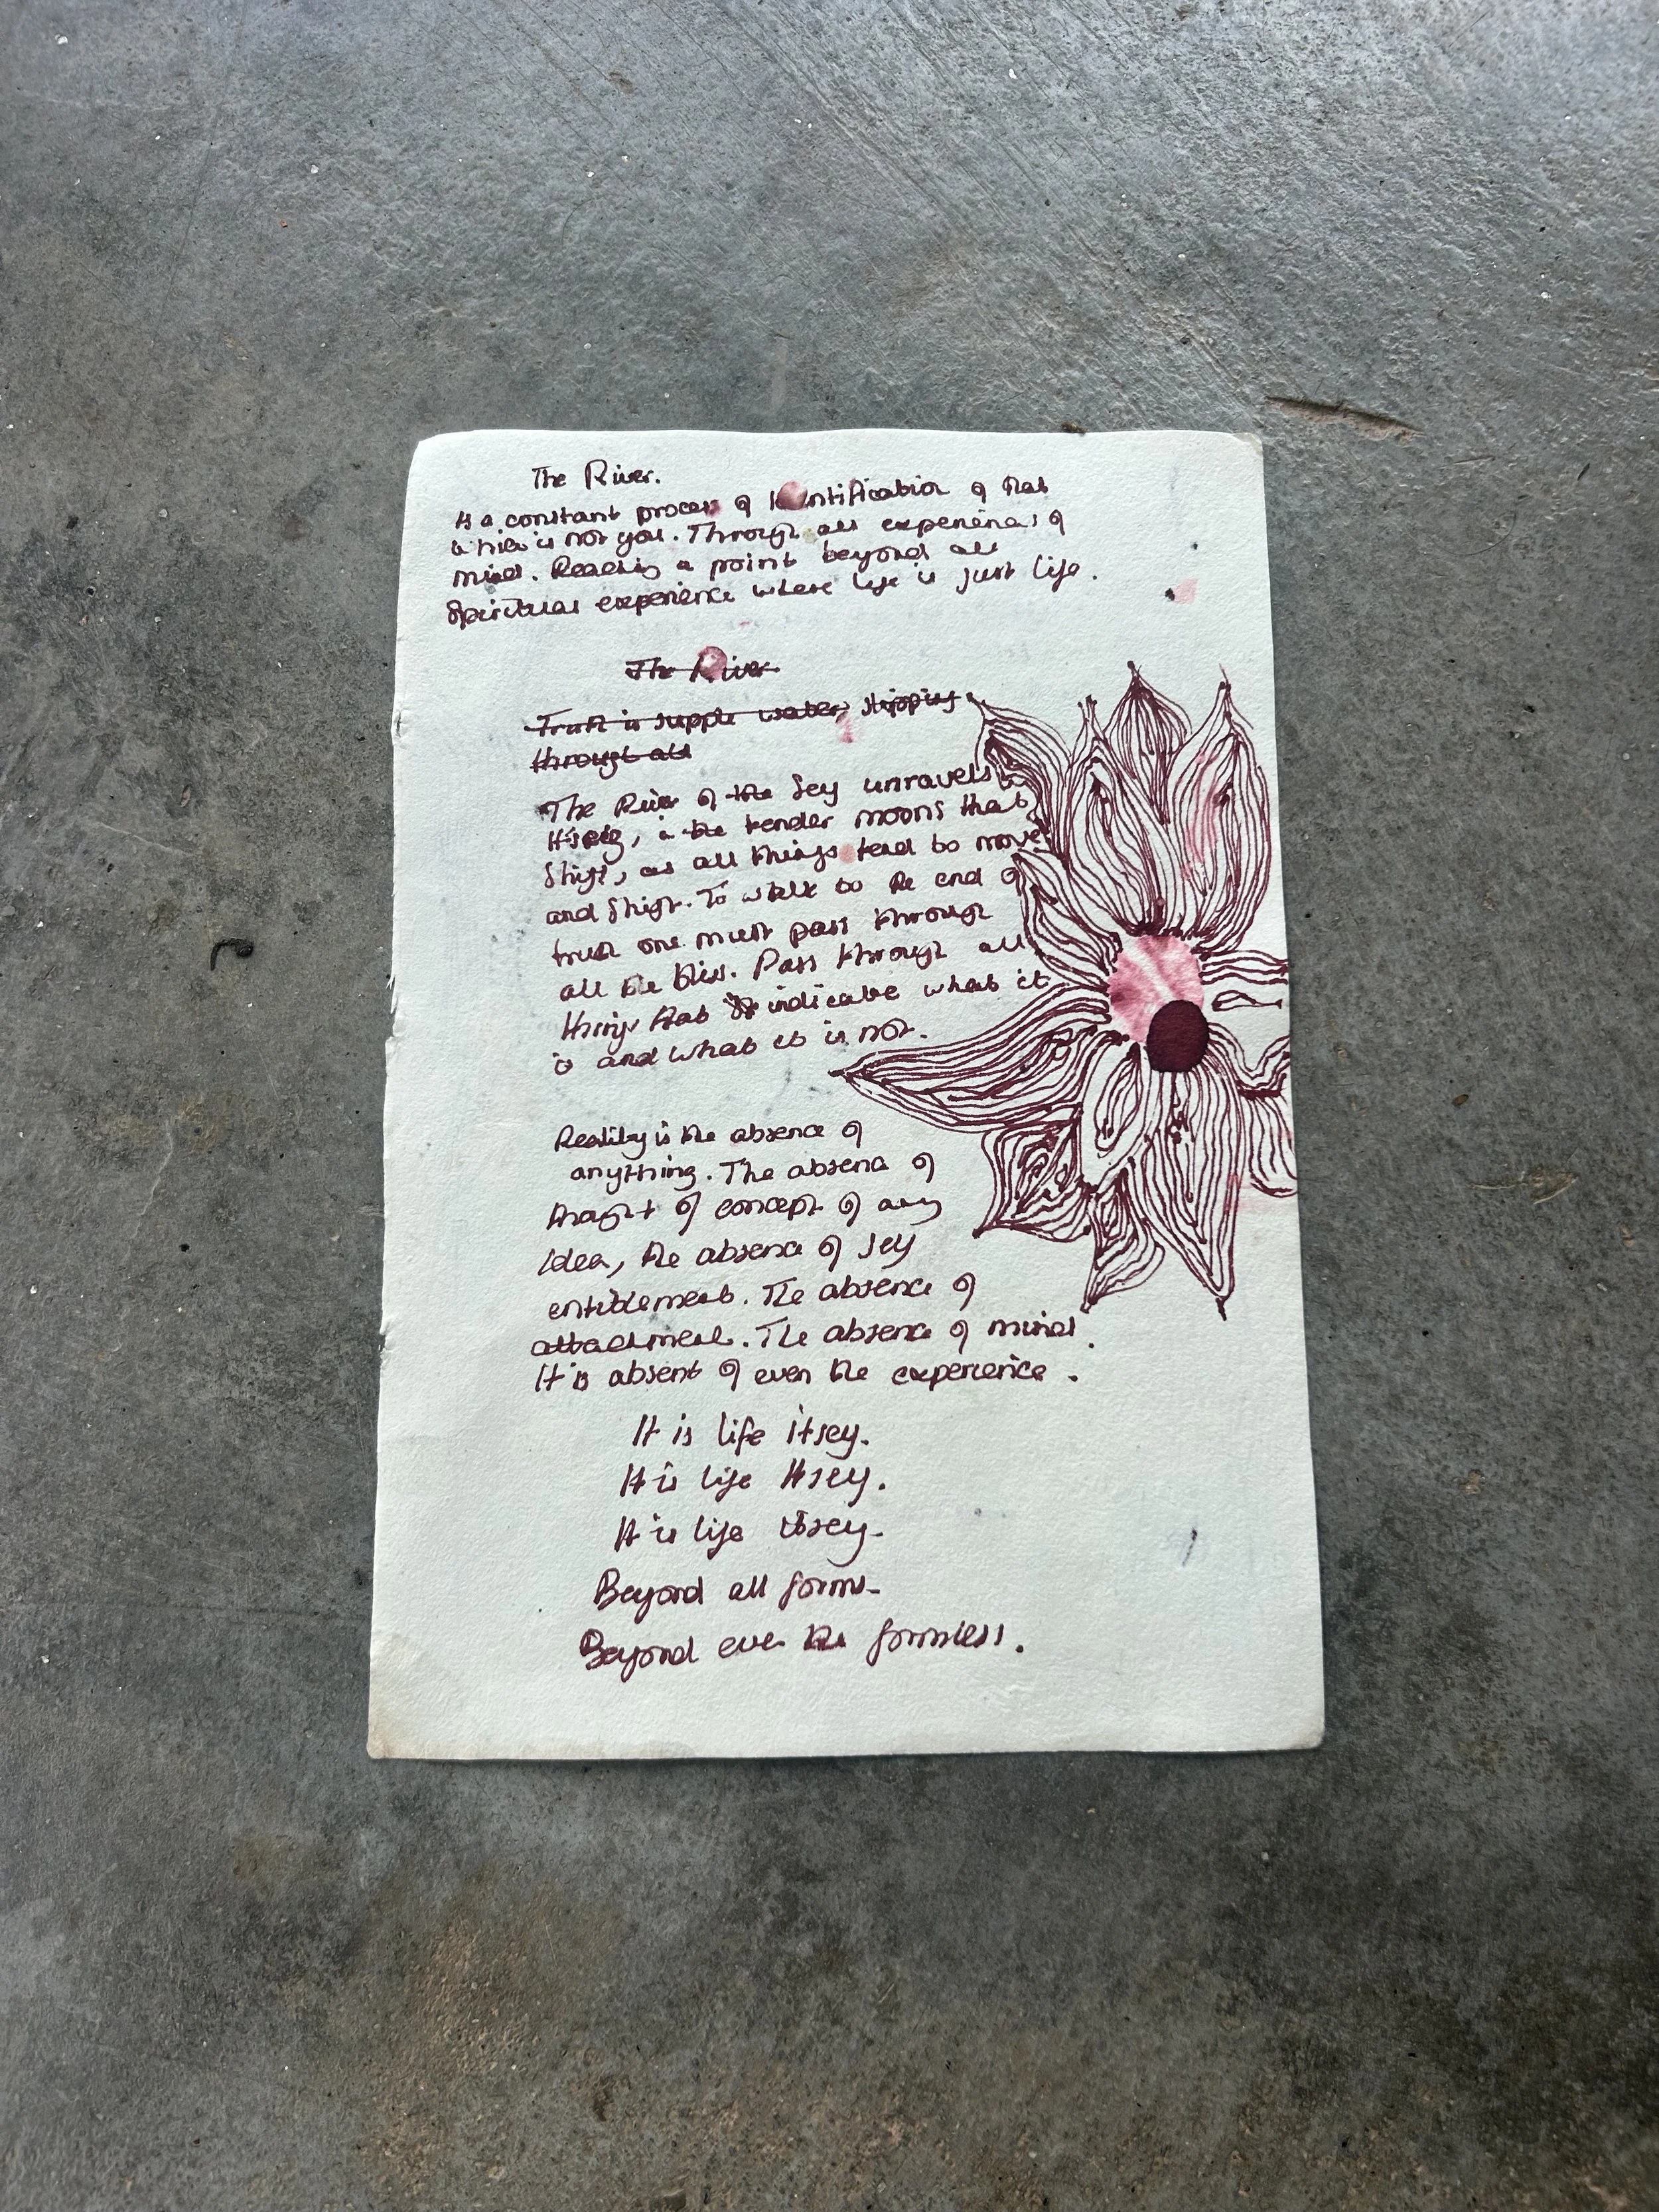 The River.
is a constant process of identification of that
which is not you. Through all experiences of
mind. Reaching a point beyond all
Spiritual experience where life is just life.
The River
Truth is supple water, slipping
through all
The River of the Self unravels
itself, in the tender moons that
shift, as all things tend to move
and shift. To walk to the end of
truth one must pass through
all the bliss. Pass through all
things that indicate what it
is and what it is not.
Reality is the absence of
anything. The absence of
thought of concept of any
idea, the absence of self
entitlement. The absence of
attachment. The absence of mind.
It is absent of even the experience.
It is life itself.
It is life itself.
It is life itself.
Beyond all forms.
Beyond even the formless.